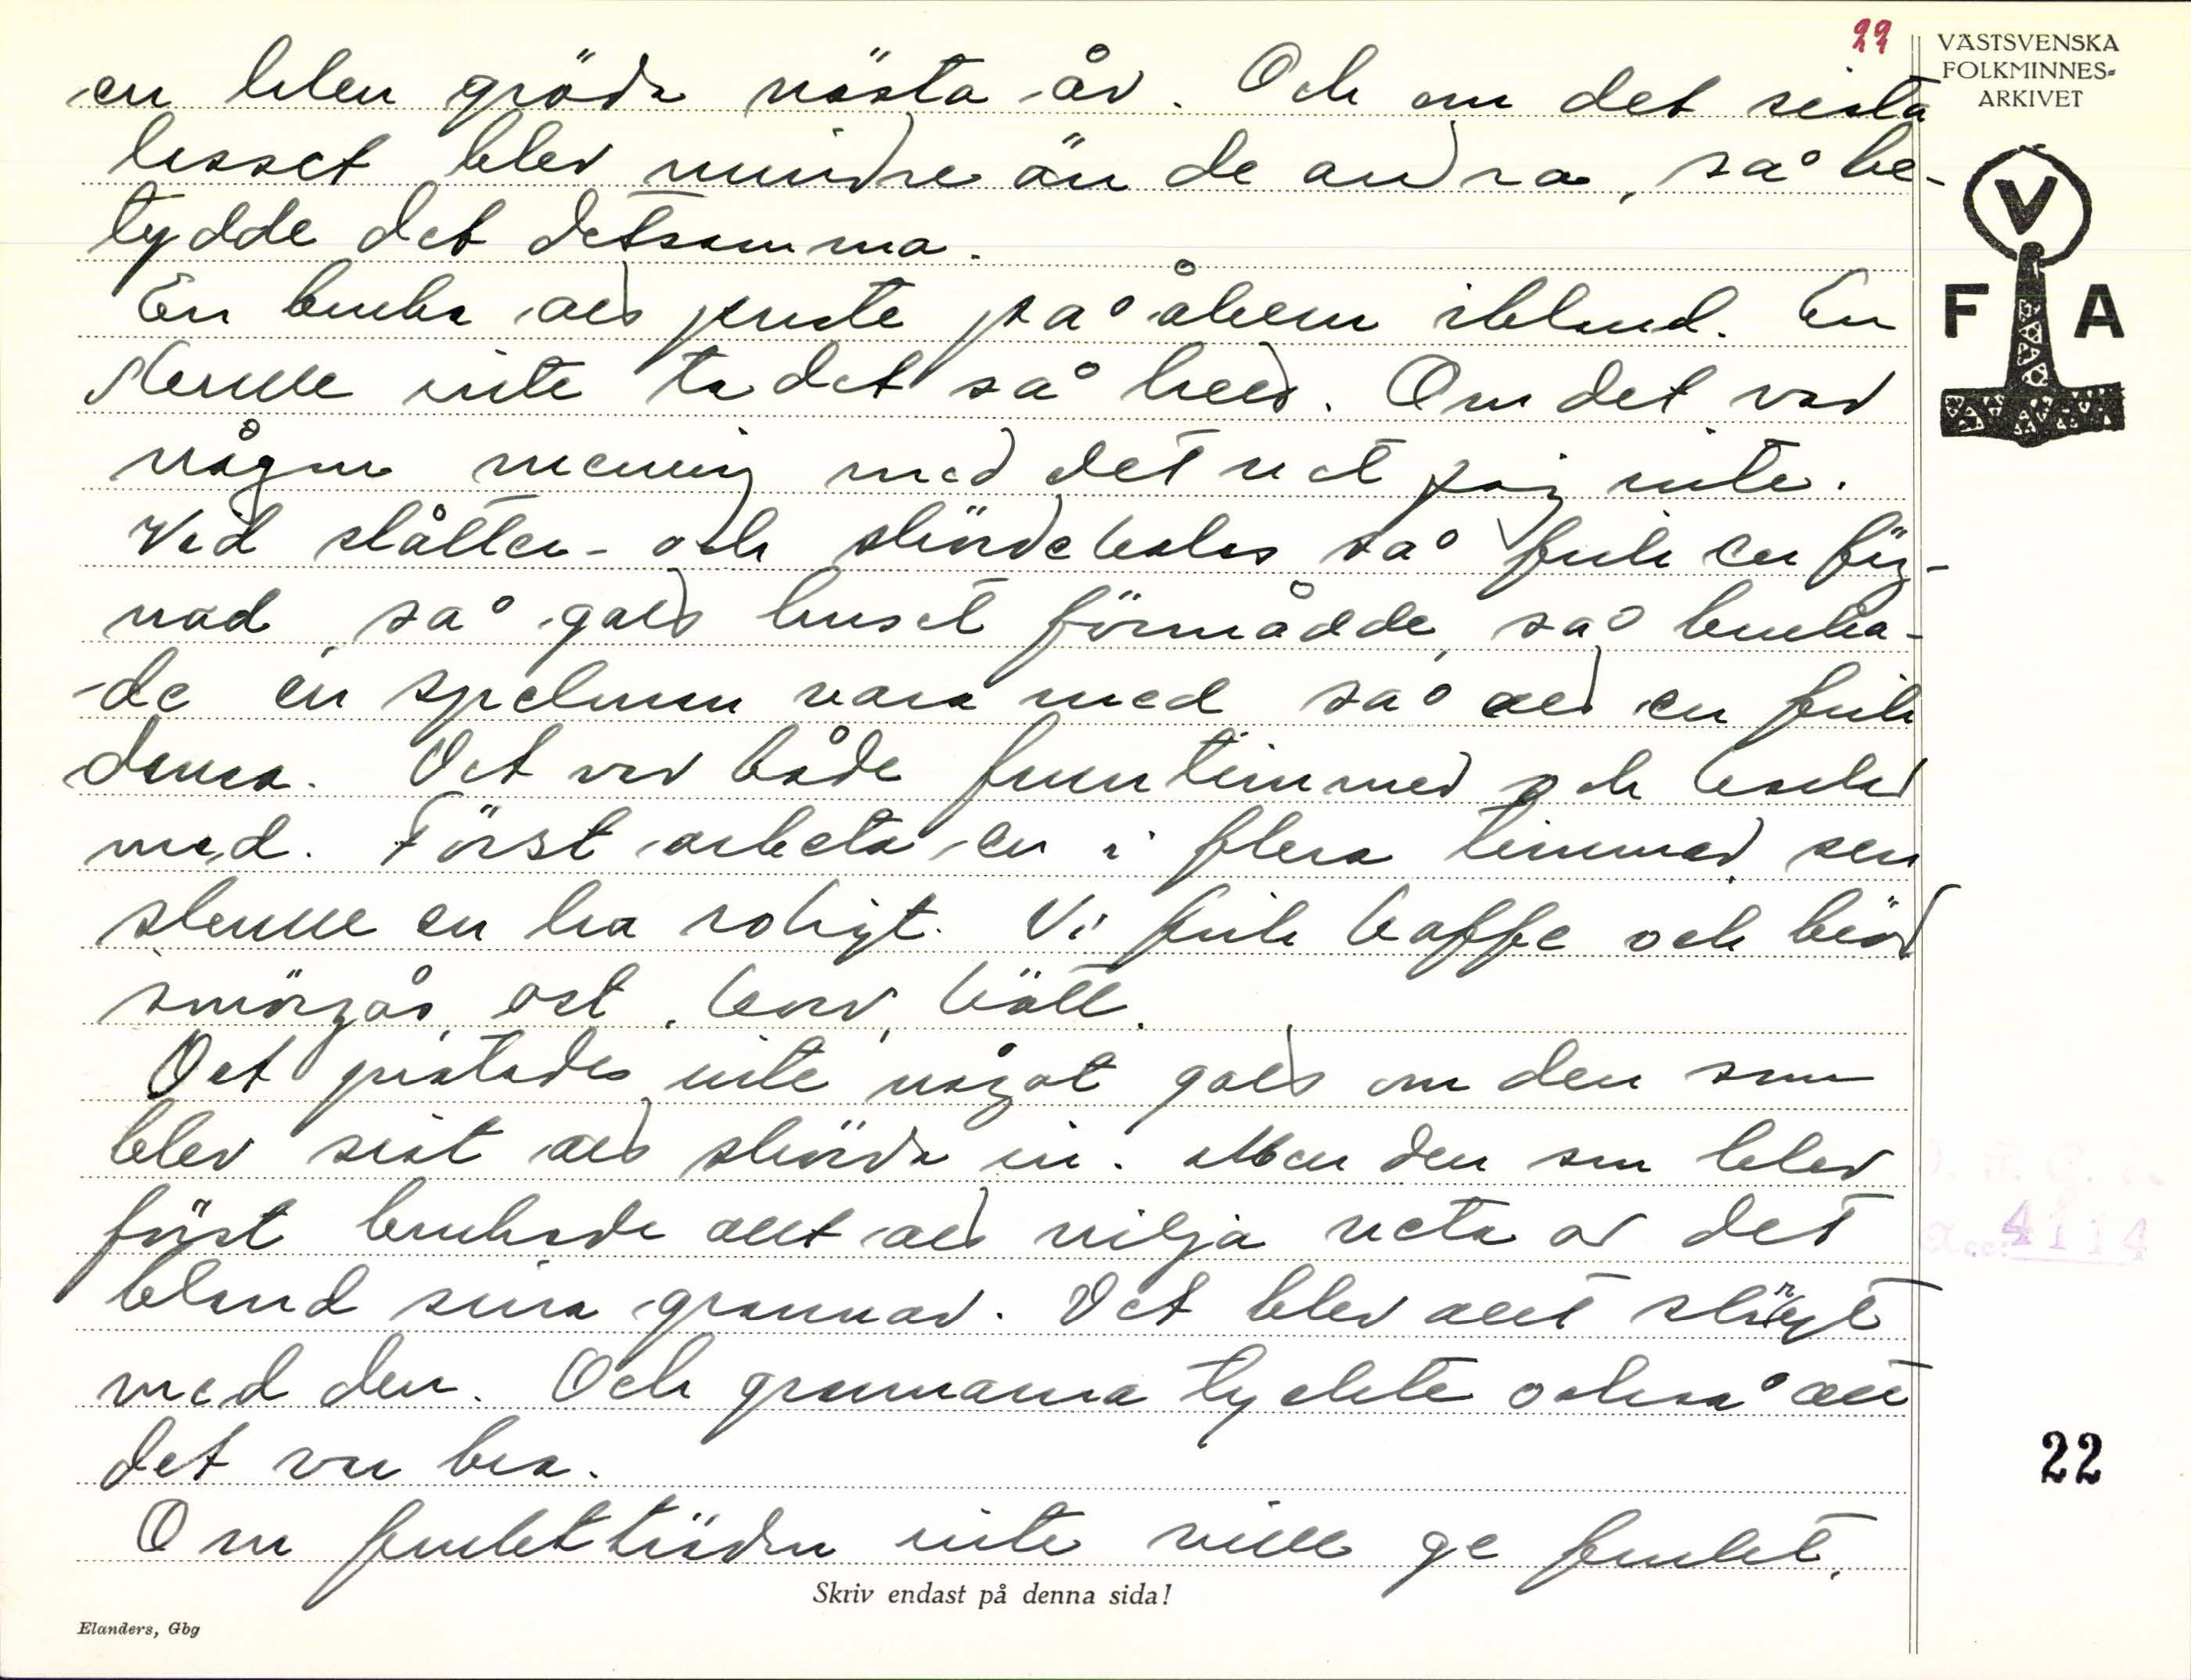 22
VÄSTSVENSKA
FOLKMINNES-
ARKIVET
V
F A
en liten gröda nästa år. Och om det sista
lasset blev mindre än de andra, så be-
tydde det detsamma.
En bruka als pusta på åkern ibland. En
skulle inte ta det så hels. Om det var
någon mening med det vet jag inte.
Vid slåtter- och skördekalas så fick en fäg-
nad, så gals huset förmådde, så bruka-
de en spelman vara med så als en fick
dansa. Det var både fruntimmer och karlar
med. Först arbeta en i flera timmar, sen
skulle en ha roligt. Vi fick kaffe och bröd
smörgås, ost, korv, kött.
Det pratades inte något gals om den som
blev sist als skörda in. Men den som blev
först brukade allt als vilja veta av det
bland sina grannar. Det blev allt skrägt
med den. Och grannarna tyckte också att
det var bra.
Om fruktträden inte ville ge frukt,
Acc. 4114
22
Skriv endast på denna sida!
Elanders, Gbg